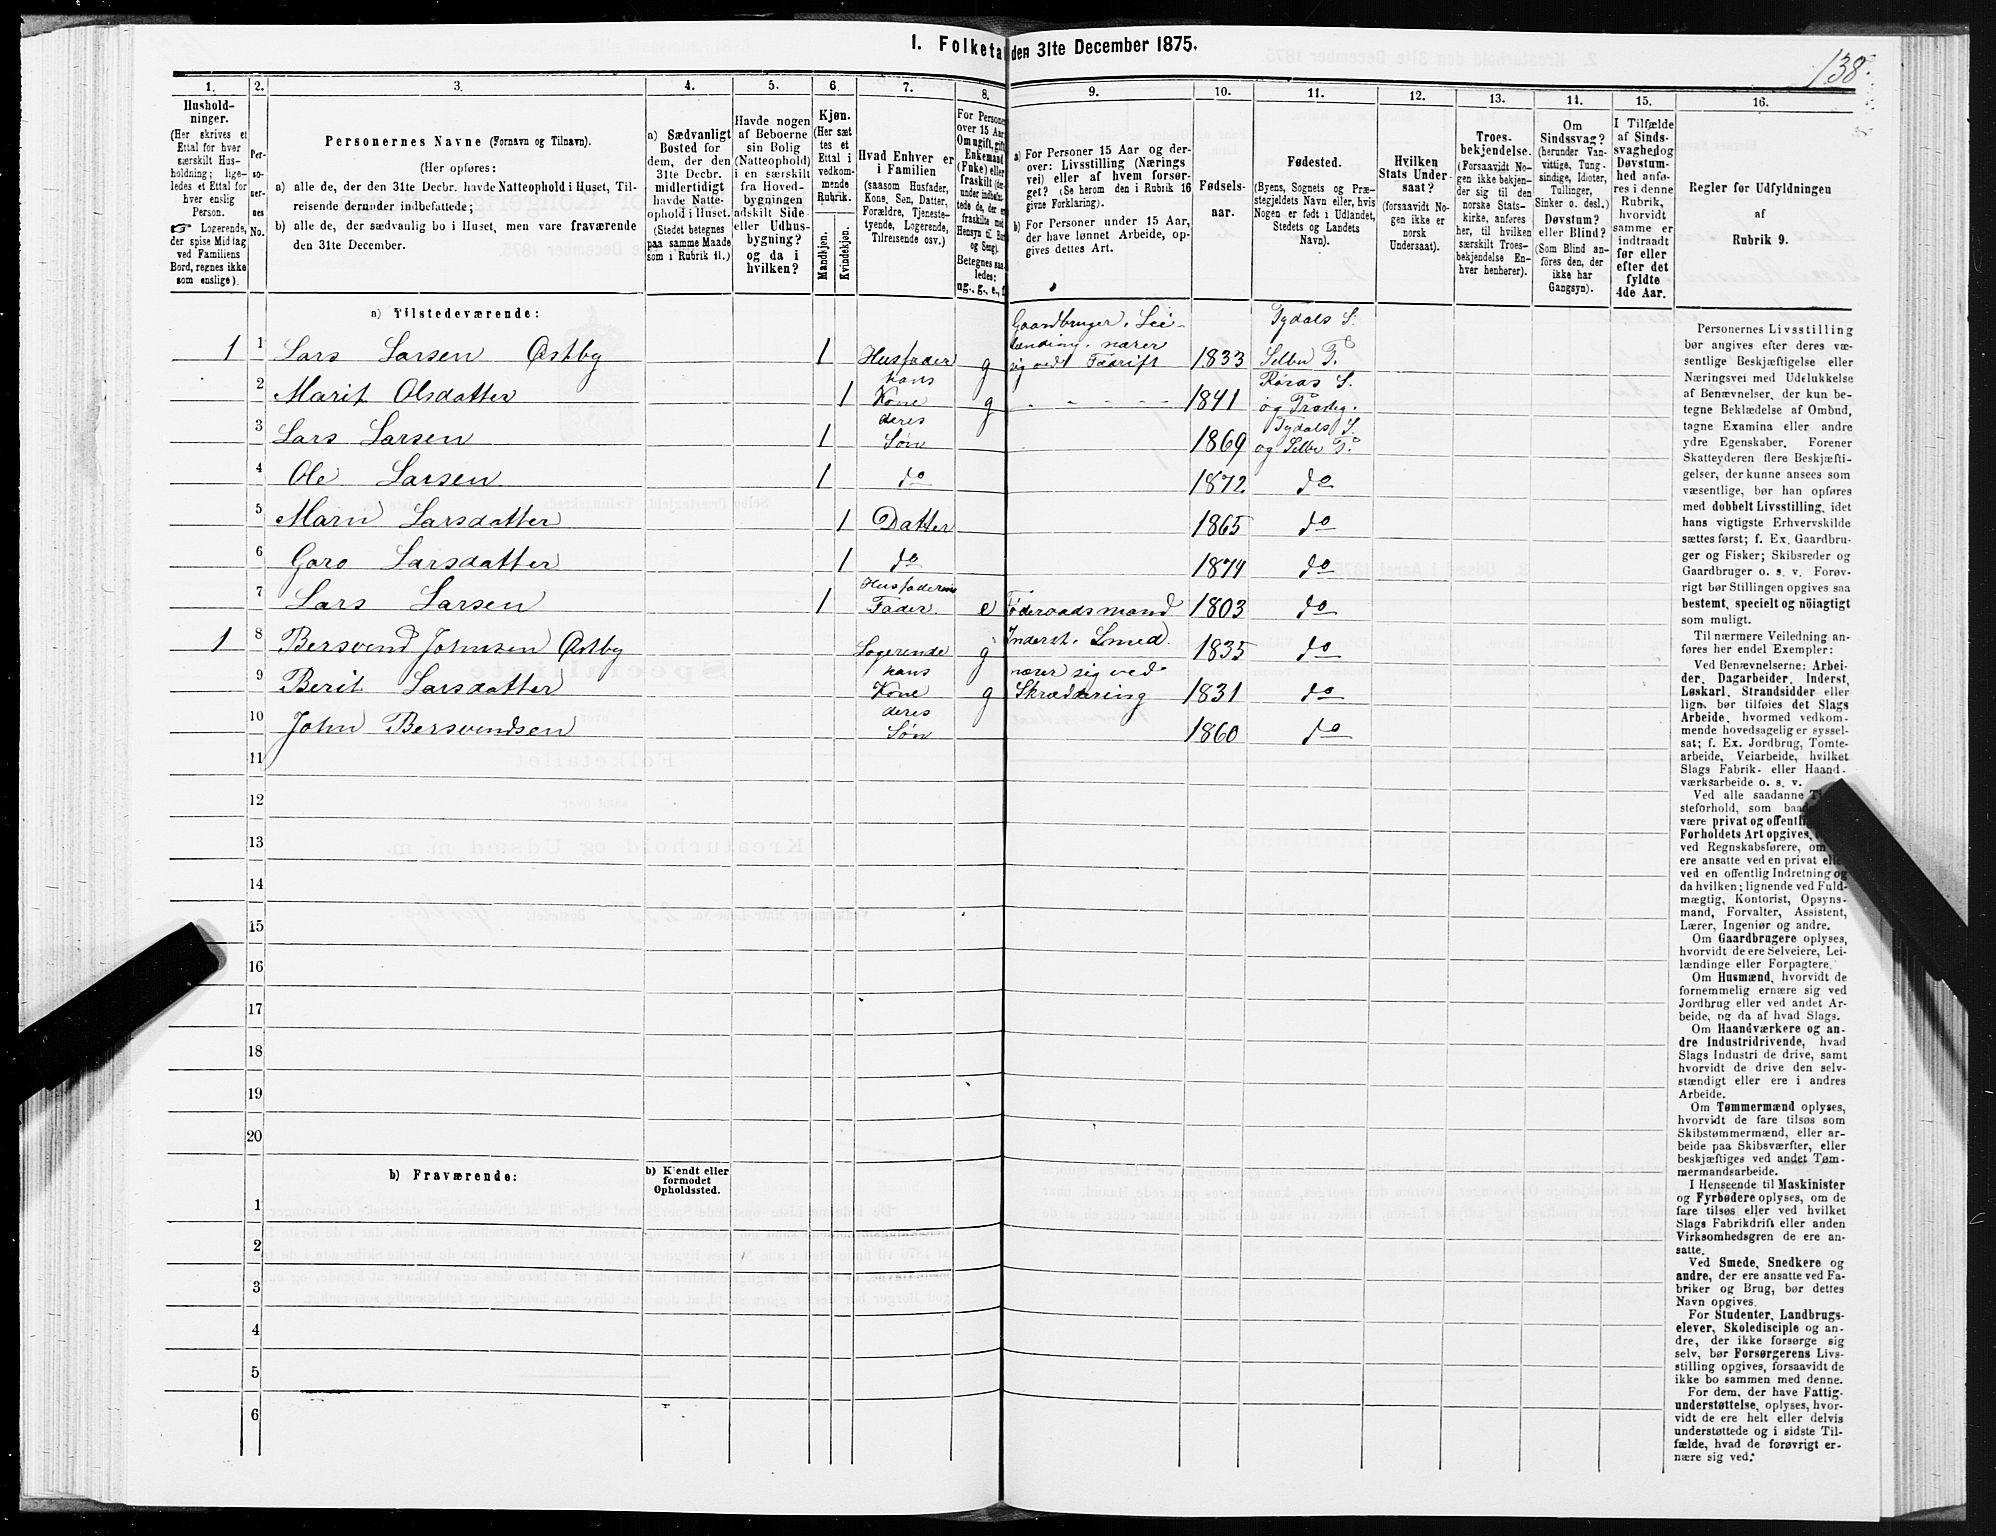 I. Folketal den 31te December 1875.
138.
1. 2. 3. 4. 5. 6. 7. 8. 9. 10. 11. 12. 13. 14. 15. 16.
Hushold-
ninger.
(Her skrives et
Ettal for hver
særskilt Hus-
holdning; lige-
ledes et Ettal for
hver enslig
Person.
☞ Logerende,
der spise Middag
ved Familiens
Bord, regnes ikke
som enslige).
Per-
so-
ner-
nes
No.
Personernes Navne (Fornavn og Tilnavn).
(Her opføres:
a) alle de, der den 31te Decbr. havde Natteophold i Huset, Til-
reisende derunder indbefattede;
b) alle de, der sædvanlig bo i Huset, men vare fraværende
den 31te December.
a) Sædvanligt
Bosted for
dem, der den
31te Decbr.
midlertidigt
havde Natte-
ophold i Huset.
(Stedet betegnes
paa samme Maade
som i Rubrik 11.)
Havde nogen
af Beboerne
sin Bolig
(Natteophold)
i en særskilt
fra Hoved-
bygningen
adskilt Side-
eller Udhus-
bygning?
og da i
hvilken?
Kjøn.
(Her sæt-
tes et
Ettal i
vedkom-
mende
Rubrik.
Mandkjøn.
Kvindekjøn.
Hvad Enhver er
i Familien
(saasom Husfader,
Kone, Søn, Datter,
Forældre, Tjeneste-
tyende, Logerende,
Tilreisende osv.)
For Personer
over 15 Aar:
Om ugift, gift,
Enkemand
(Enke) eller
fraskilt
Betegnes saa-
ledes:
ug., g., e., f.
a) For Personer 15 Aar og der-
over: Livsstilling (Nærings
vei) eller af hvem forsør-
get? (Se herom den i Rubrik 16
givne Forklaring).
b) For Personer under 15 Aar,
der have lønnet Arbeide, op-
gives dettes Art.
Fødsels-
aar.
Fødested.
(Byens, Sognets og Præ-
stegjeldets Navn eller, hvis
Nogen er født i Udlandet,
Stedets og Landets
Navn).
Hvilken
Stats Under-
saat?
(forsaavidt No-
gen ikke er
norsk
Undersaat).
Troes-
bekjendelse.
(Forsaavidt No-
gen ikke bekjen-
der sig til den
norske Stats-
kirke, anføres
her, til hvilken
særskilt Troes-
bekjendelse En-
hver henhører).
Om
Sindssvag?
(herunder Van-
vittige, Tung-
sindige, Idioter,
Tullinger,
Sinker o. desl.)
Døvstum?
eller Blind?
(Som Blind an-
føres den, der
ikke har
Gangsyn).
I Tilfælde
af Sinds-
svaghed og
Døvstum-
hed anfø-
res i denne
Rubrik,
hvorvidt
samme er
indtraadt
før eller
efter det
fyldte
4de Aar.
Regler for Udfyldningen
af
Rubrik 9.
a) Tilstedeværende:
1 1 Lars Larsen Østby 1 Husfader g Gaardbruger, Lei-
lænding, nærer
sig ved Fædrift 1833 Tydals S.
Selbu P.
2 Marit Olsdatter 1 hans
Kone g - - - - - 1841 Røraas S.
og Præsteg.
3 Lars Larsen 1 deres
Søn 1869 Tydals S.
og Selbu P.
4 Ole Larsen 1 do 1872 do
5 Marn Larsdatter 1 Datter 1865 do
6 Goro Larsdatter 1 do 1874 do
7 Lars Larsen 1 Husfaderens
Fader. e Føderaadsmand 1803 do
1 8 Bersvend Johnsen Østby Logerende g Inderst. Smed. 1835 do
9 Berit Larsdatter hans
Kone g nærer sig ved
Skræddering 1831 do
10 John Bersvendsen deres
Søn 1860 do
11
12
13
14
15
16
17
18
19
20
b) Fraværende:
b) Kjendt eller
formodet
Opholdssted.
1
2
3
4
5
6
Personernes Livsstilling
bør angives efter deres væ-
sentlige Beskjæftigelse eller
Næringsvei med Udelukkelse
af Benævnelser, der kun be-
tegne Beklædelse af Ombud,
tagne Examina eller andre
ydre Egenskaber. Forener
Skatteyderen flere Beskjæfti-
gelser, der kunne ansees som
væsentlige, bør han opføres
med dobbelt Livsstilling, idet
hans vigtigste Erhvervskilde
sættes først; f. Ex. Gaardbru-
ger og Fisker; Skibsreder og
Gaardbruger o. s. v. Forøv-
rigt bør Stillingen opgives saa
bestemt, specielt og nöiagtigt
som muligt.
Til nærmere Veiledning an-
føres her endel Exempler:
Ved Benævnelserne: Arbei-
der, Dagarbeider, Inderst,
Løskarl, Strandsidder eller
lign. bør tilføies det Slags
Arbeide, hvormed vedkom-
mende hovedsagelig er syssel-
sat; f. Ex. Jordbrug, Tomte-
arbeide, Veiarbeide, hvilket
Slags Fabrik- eller Haand-
værksarbeide o. s. v.
Ved alle saadanne
steforhold, som
være privat og
Forholdets Art opgives,
ved Regnskabsførere, om
ere ansatte ved en privat
ved en offentlig Indretning og
da hvilken; lignende ved Fuld-
mægtig, Kontorist, Opsyns-
mand, Forvalter, Assistent,
Lærer, Ingeniør og andre.
Om Gaardbrugere oplyses,
hvorvidt de ere Selveiere, Lei-
lændinge eller Forpagtere.
Om Husmænd, hvorvidt de
fornemmelig ernære sig ved
Jordbrug eller ved andet Ar-
beide, og da af hvad Slags.
Om Haandværkere og an-
dre Industridrivende, hvad
Slags Industri de drive, samt
hvorvidt de drive den selv-
stændigt eller ere i andres
Arbeide.
Om Tømmermænd oplyses,
hvorvidt de fare tilsøs som
Skibstømmermænd, eller ar-
beide paa Skibsværfter, eller
beskjæftiges ved andet Tøm-
mermandsarbeide.
I Henseende til Maskinister
og Fyrbødere oplyses, om de
fare tilsøs eller ved hvilket
Slags Fabrikdrift eller anden
Virksomhedsgren de ere an-
satte.
Ved Smede, Snedkere og
andre, der ere ansatte ved Fa-
briker og Brug, bør dettes
Navn opgives.
For Studenter, Landbrugs-
elever, Skoledisciple og an-
dre, der ikke forsørge sig
selv, bør Forsørgerens Livs-
stilling opgives, forsaavidt de
ikke bo sammen med denne.
For dem, der have Fattig-
understøttelse, oplyses, hvor-
vidt de ere helt eller delvis
understøttede og i sidste Til-
fælde, hvad de forøvrigt er-
nære sig ved.